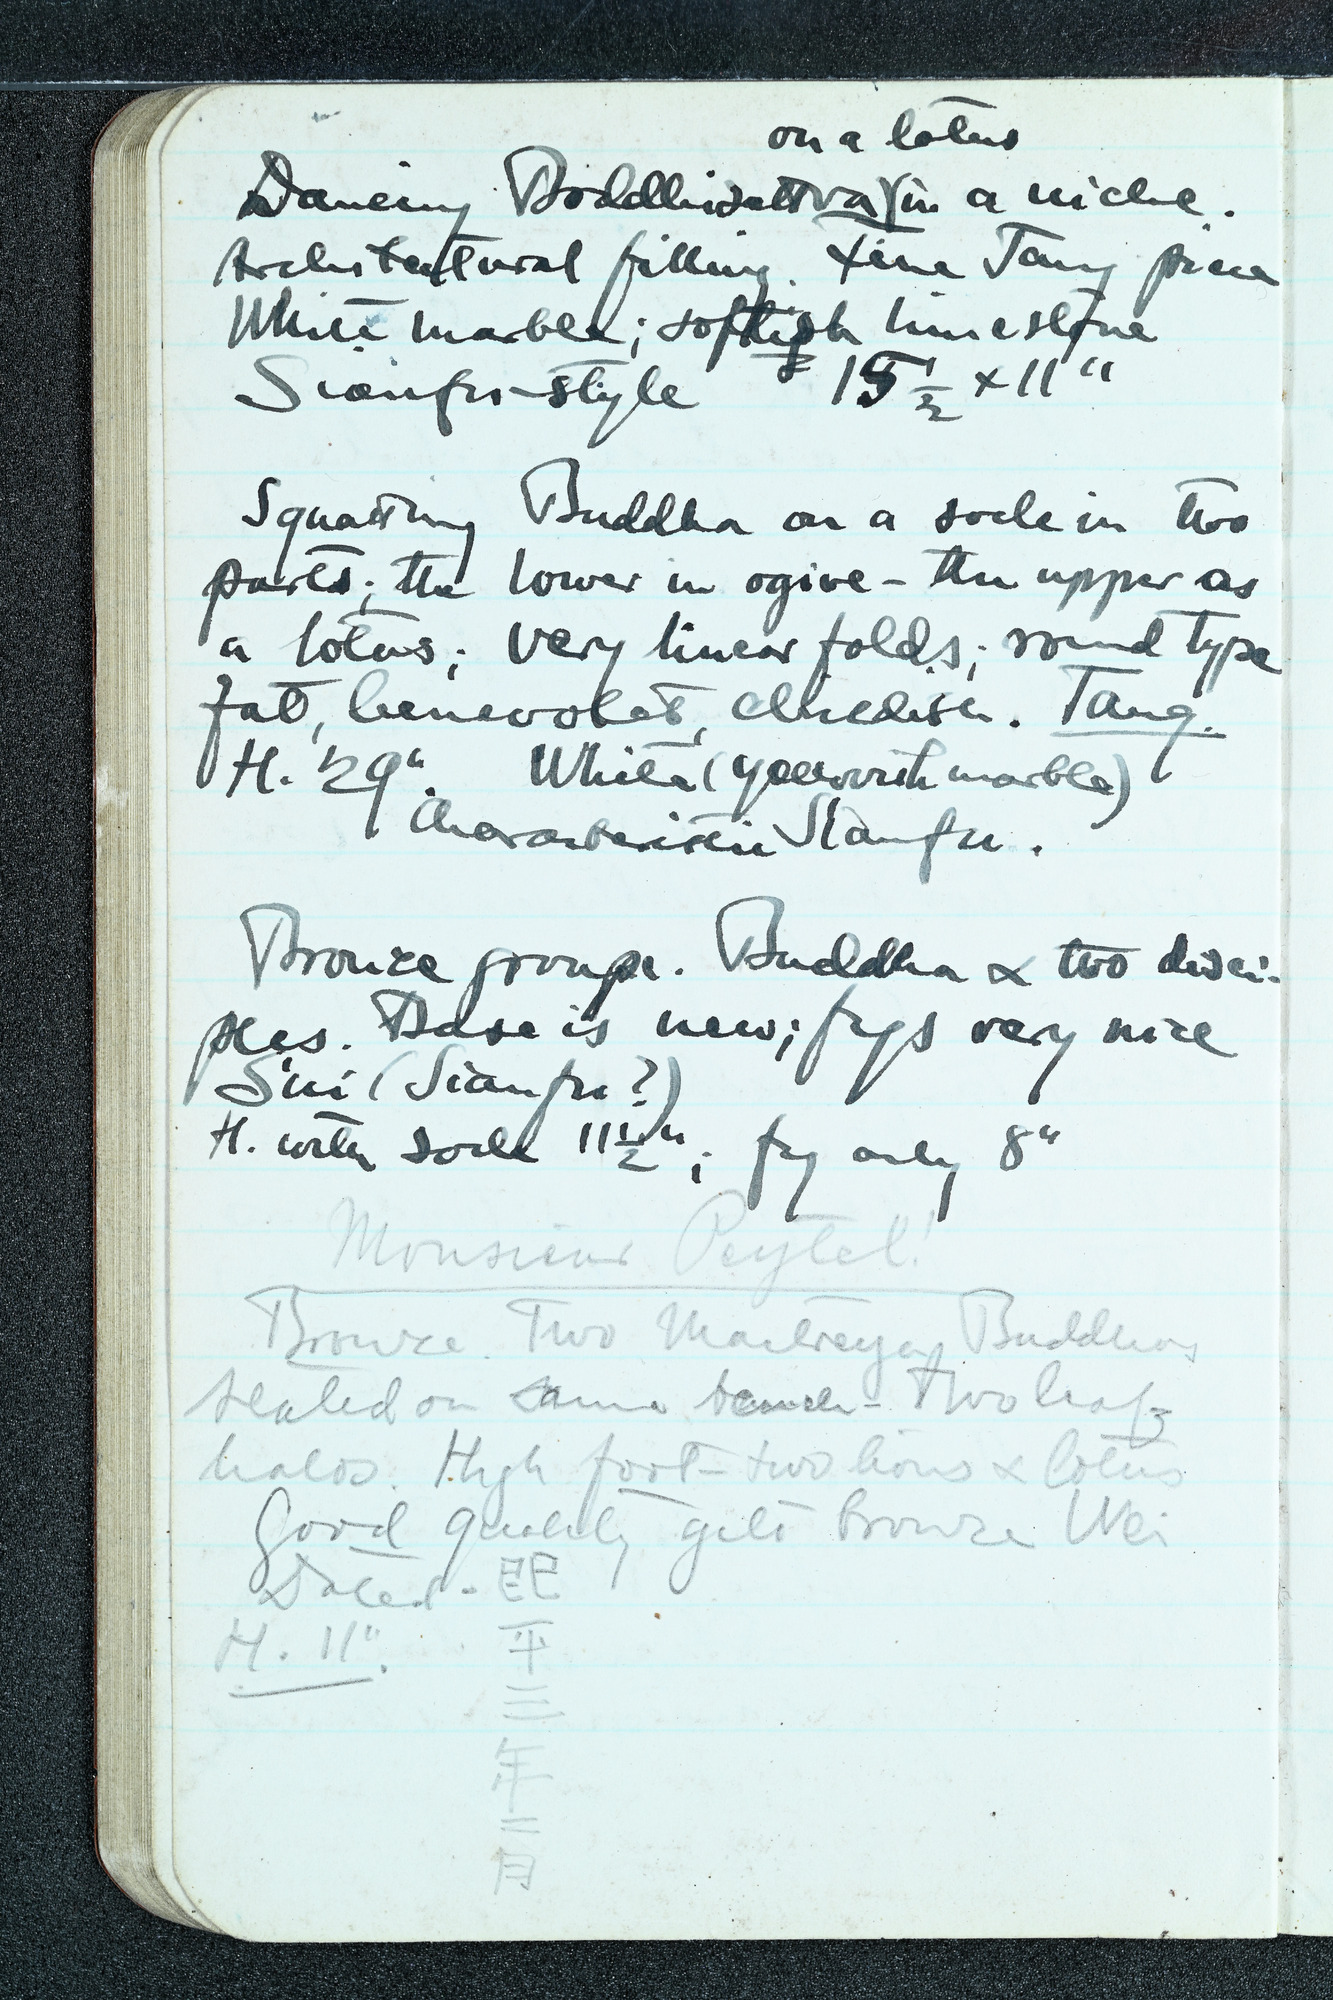 on a lotus
Dancing Boddhisattva (in a niche.
Architectural filling. Fine Tang piece
White marble; softish limestone
Sianfu-style 15 1/2 x 11"
Squatting Buddha on a socle in two
parts; the lower in ogive - the upper as
a lotus; very linear folds; round type
fat, benevolet, chinedish. Tang.
H. 29". White (yellowish marble)
Characteristic Sianfu.
Bronze groupe. Buddha & two disci-
ples. Base is new; fygs very nice
Sui (Sianfu?)
H. with socle 11 1/2"; fyg only 8"
Monsieur Peytel!
Bronze. Two Maitreya Buddhas
seated on same bench - Two leaf
halos. High foot - two lions & lotus
Good quality gilt bronze Wei
Dated - 熙
平
三
年
二
月
H. 11".